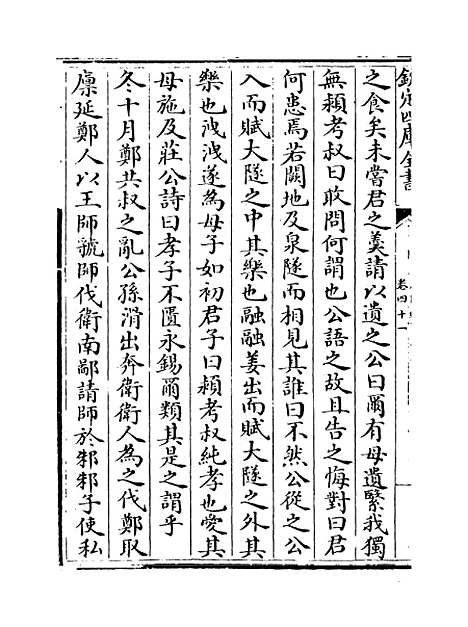 欽定四庫全書
卷四十一
之食矣未嘗君之羹請以遺之公曰爾有母遺繄我獨
無穎考叔曰敢問何謂也公語之故且告之悔對曰君
何患焉若闕地及泉隧而相見其誰曰不然公從之公
入而賦大隧之中其樂也融融姜出而賦大隧之外其
樂也洩洩遂為母子如初君子曰穎考叔純孝也愛其
母施及莊公詩曰孝子不匱永錫爾類其是之謂乎
冬十月鄭共叔之亂公孫滑出奔衛衛人為之伐鄭取
廪延鄭人以王師虢師伐衛南鄙請師於邾邾子使私